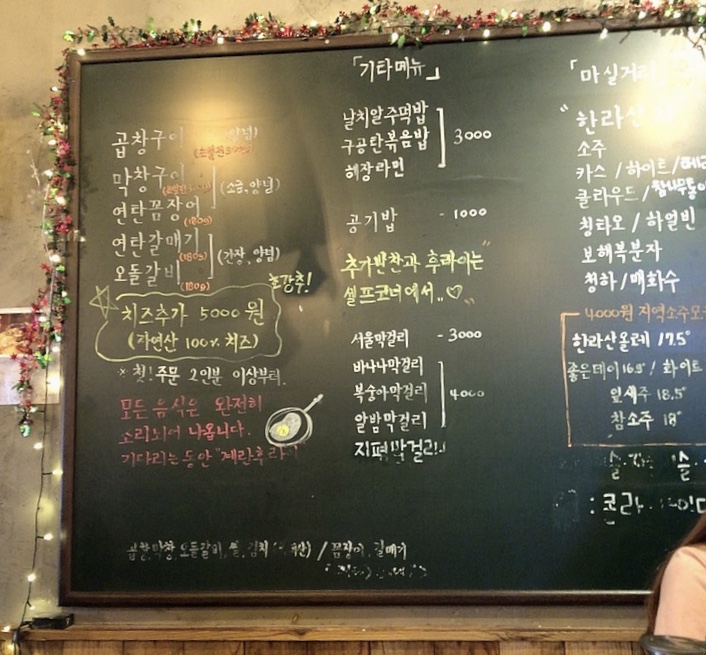 곱창구이 양념)
막창구이
연탄꼼장어 (180g)
(소금, 양념)
연탄갈매기 (180g)
오돌갈비 (180g)
(간장, 양념)
강추!
치즈추가 5000원
(자연산 100% 치즈)
※ 첫! 주문 2인분 이상부터.
모든 음식은 완전히
소리되어 나옵니다.
기다리는동안 "계란후라이
곱창, 막창, 오돌갈비, 쌀, 김치 / 꼼장어, 갈매기
「기타메뉴」
날치알주먹밥
구공탄볶음밥
해장라면
3000
공기밥 - 1000
추가반찬과 후라이는
셀프코너에서.. ♡
서울막걸리 - 3000
바나나막걸리
복숭아막걸리
알밤막걸리
4000
지평막걸리!
「마실거리
"한라산
소주
카스 / 하이트 /
클라우드 /
칭타오 / 하얼빈
보해복분자
청하 / 매화수
4000원 지역소주
한라산올레 17.5°
좋은데이 16.9° / 화이트
잎새주 18.5°
참소주 18°
: 콜라.